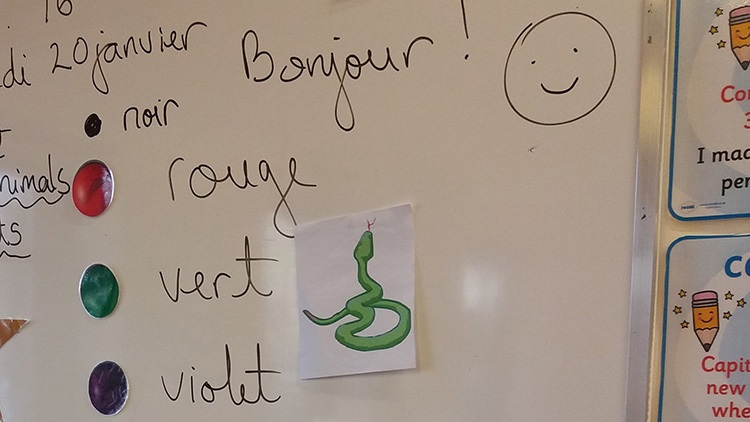 16
di 20 janvier
Bonjour !
noir
nimals
rouge
ts
vert
violet
Co
3
I mad
per
Co
Capit
new
whe